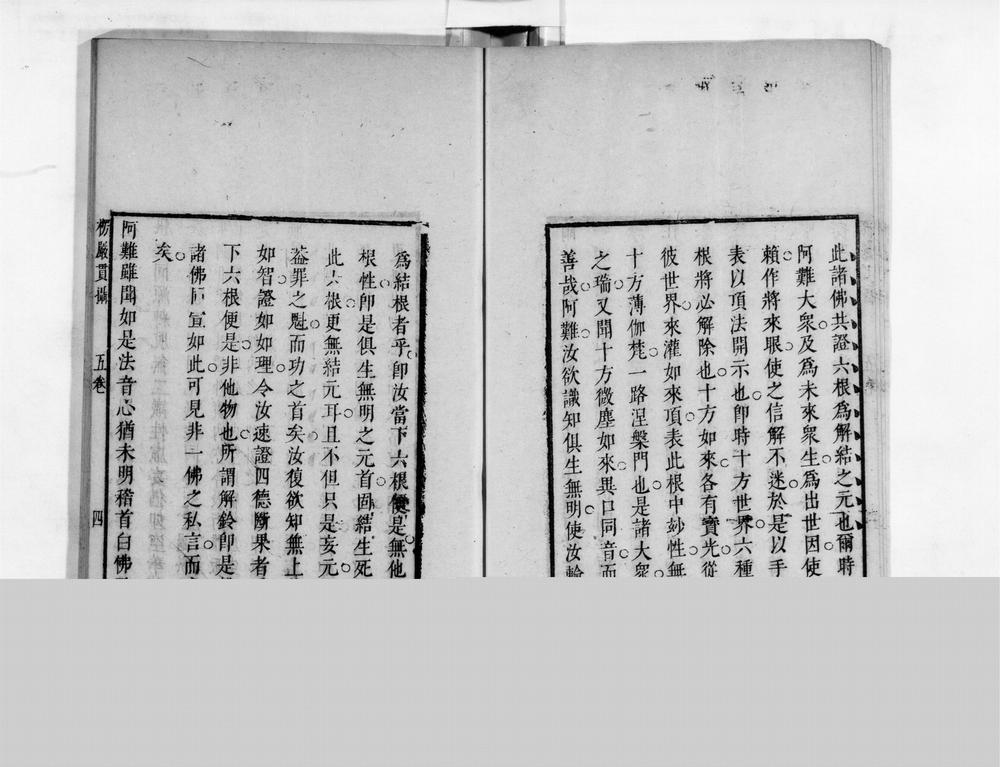 此諸佛共證六根爲解結之元也爾時
阿難大衆及爲未來衆生爲出世因使
賴作將來眼使之信解不迷於是以手
表以頂法開示也卽時十方世界六種
根將必解除也十方如來各有寶光從
彼世界來灌如來項表此根中玅性無
十方薄伽梵一路涅槃門也是諸大衆
之瑞又聞十方微塵如來異口同音而
善哉阿難汝欲識知俱生無明使汝輪
爲結根者乎卽汝當下六根便是無他
根性卽是俱生無明之元首固結生死
此六根更無結元耳且不但只是妄元
葢罪之魁而功之首矣汝復欲知無上
如智證如如理令汝速證四德斷果者
下六根便是非他物也所謂解鈴卽是
諸佛同宣如此可見非一佛之私言而
矣
阿難雖聞如是法音心猶未明稽首白佛
楞嚴貫攝 五卷 四